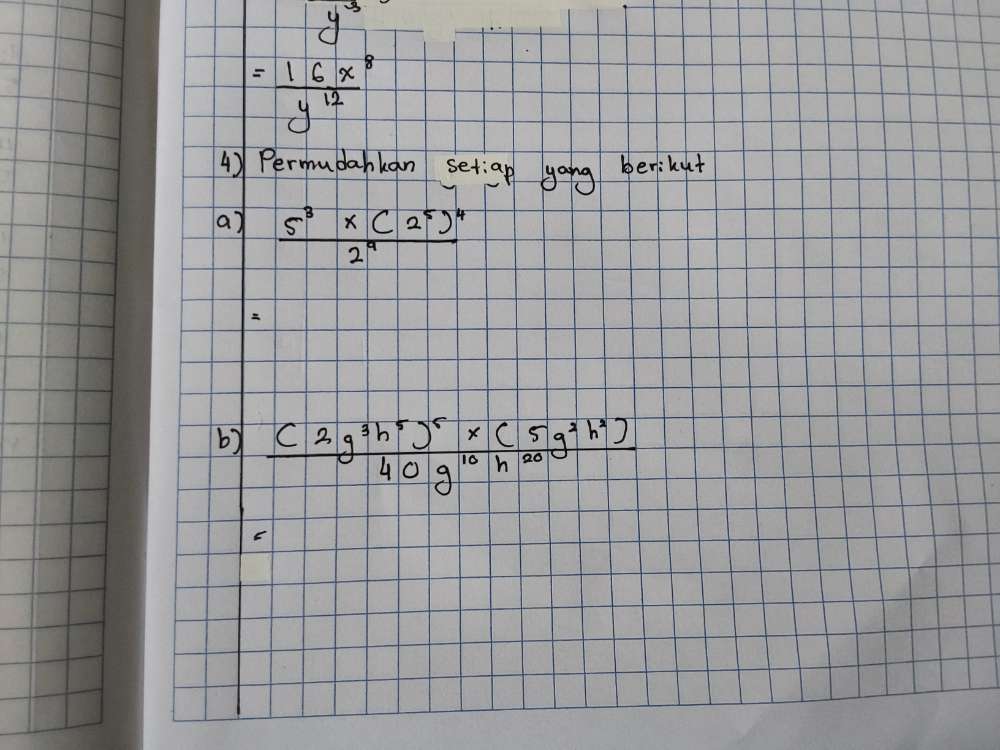 y³
= 16x⁸
y¹²
4) Permudahkan setiap yang berikut
a) 5³ × (2⁵)⁴
2⁹
=
b) (2g³h⁵)⁵ × (5g²h²)
40g¹⁰h²⁰
=